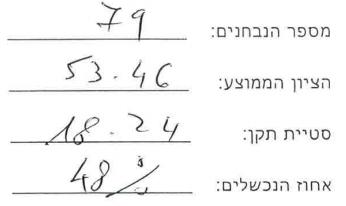 מספר הנבחנים: 79
הציון הממוצע: 53.46
סטיית תקן: 18.24
אחוז הנכשלים: 48%